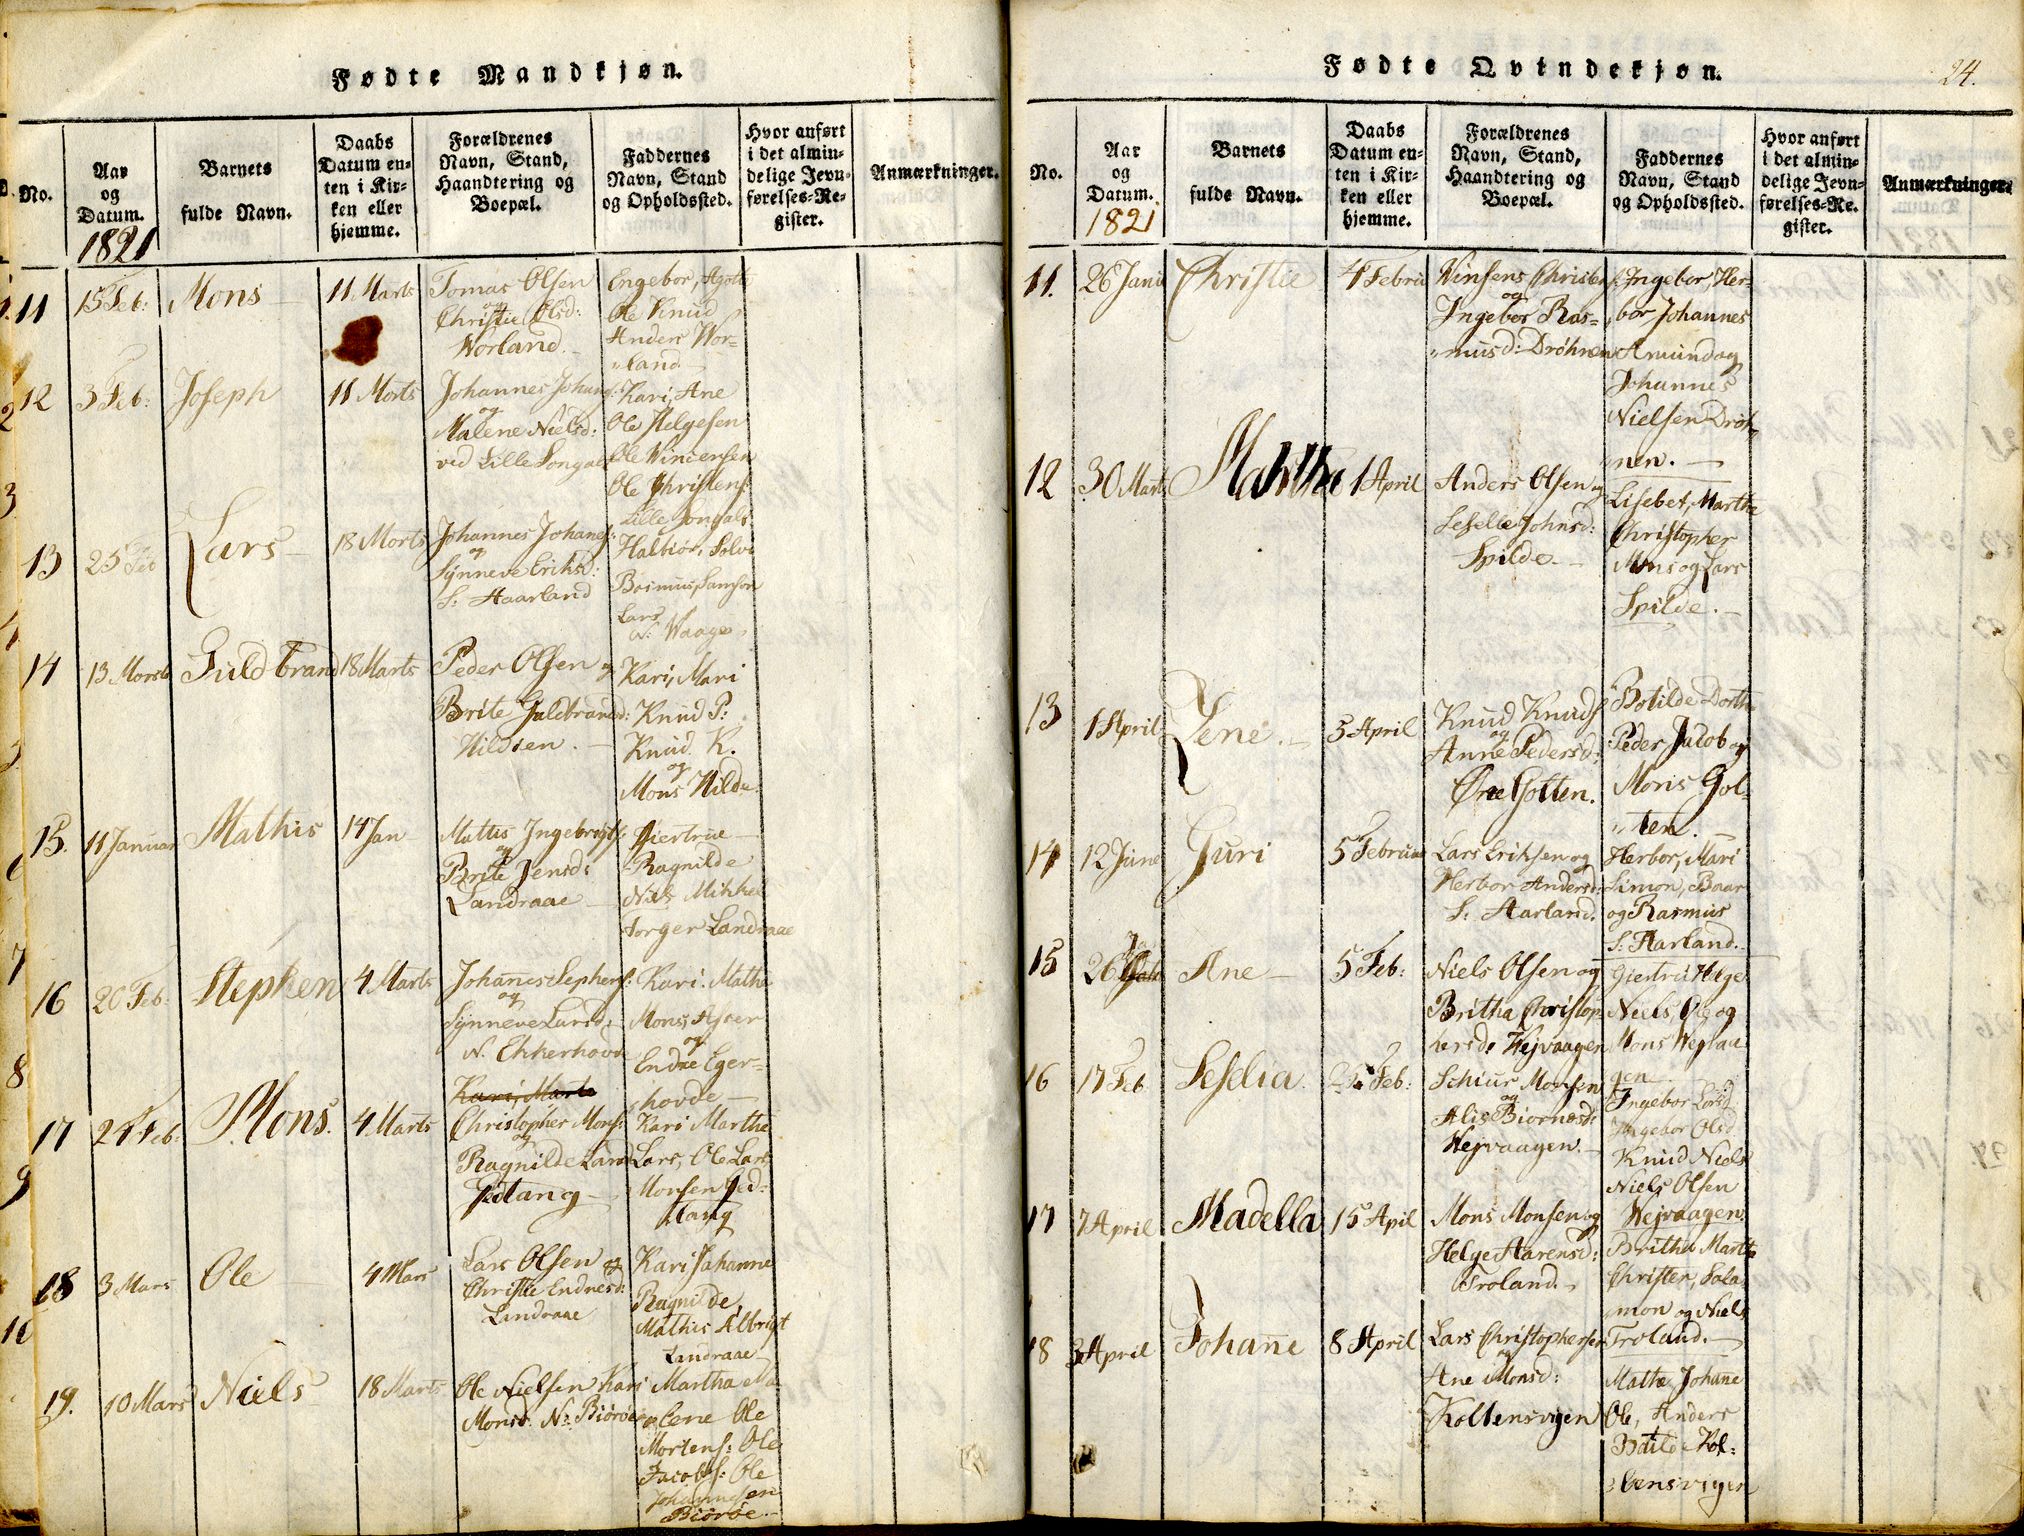 Fødte Mandkjøn.
No.
Aar
og
Datum.
1821
Barnets
fulde Navn.
Daabs
Datum en-
ten i Kir-
ken eller
hjemme.
Forældrenes
Navn, Stand,
Haandtering og
Boepæl.
Faddernes
Navn, Stand
og Opholdssted.
Hvor anført
i det almin-
delige Jevn-
førelses-Re-
gister.
Anmærkninger.
11
15 Feb:
Mons
11 Marts
Tomas Olsen
og
Christie Olsd:
Worland.
Engebor, Agoth
Ole Knud
Anders Wor-
land.
12
3 Feb:
Joseph
11 Marts
Johannes Johans:
og
Malene Nielsd:
ved Lille Songal
Kari, Ane
Ole Helgesen
Ole Wincensen
Ole Christens:
Lille Songals
13
25 Feb
Lars
18 Marts
Johannes Johanes:
og
Synneve Eriksd:
S: Haarland
Halbior, Solvi
Rasmus Samson
Lars
N: Waage
14
13 Marts
Guldbrand
18 Marts
Peder Olsen og
Brite Guldbrandsd:
Hildeen.
Kari, Mari
Knud P:
Knud K.
og
Mons Hilde.
15.
11 Januar
Mathis
14 Jan
Mattis Ingebrigts:
og
Brite Jensd:
Landraae
Giertrue
Ragnilde
Niels Mikkel
Torger Landraae
16
20 Feb:
Stephen
4 Marts
Johanes Stephens:
og
Synneve Larsd:
N. Ekkerhovd
Kari. Matha
Mons, Asser
og
Endre Eger-
hovde
17
24 Feb:
Mons.
4 Marts
Kari, Marte
Christopher Mons:
og
Ragnilde Larsd
Kari Martha
Lars, Ole Lars
Monsen Ged-
tang
18
3 Mars
Ole
4 Mars
Lars Olsen og
Christie Endresd:
Landraae
Kari Johanne
Ragnilde
Mathis Albrigt
Landraae
19.
10 Mars
Niels
18 Marts
Ole Nielsen Kari
Monsd. N: Biöröe
Martha Ma-
lene Ole
Mortens: Ole
Jacobs: Ole
Johannesen
Biöröe.
Fødte Qvindekjøn.
24.
No.
Aar
og
Datum.
1821
Barnets
fulde Navn.
Daabs
Datum en-
ten i Kir-
ken eller
hjemme.
Forældrenes
Navn, Stand,
Haandtering og
Boepæl.
Faddernes
Navn, Stand
og Opholdssted.
Hvor anført
i det almin-
delige Jevn-
førelses-Re-
gister.
Anmærkninger.
11.
26 Janu
Christie
4 Febru
Vinsens Christens:
og
Ingebor Ras-
musd: Dröhnen
Ingebor, Her-
bor, Johannes
Amund og
Johannes
Nielsen Dröh-
nen.
12
30 Marts
Martha
1 April
Anders Olsen og
Seselle Johnsd:
Spilde.
Lisebet, Martha
Christopher
Mons og Lars
Spilde.
13
1 April
Lene.
5 April
Knud Knuds
og
Anne Pedersd:
Øre Gotten.
Botilde Dorth
Peder Jacob og
Mons Gol-
ten.
14
12 Jane
Guri
5 Februar
Lars Eriksen og
Herbor Andersd:
S: Harland.
Herbor, Mari
Simon, Baar
og Rasmus
S: Harland.
15
26 Ja
Ane
5 Feb:
Niels Olsen og
Britha Christop-
hersd: Wejvaagen
Giertru Helge
Niels, Ole og
Mons Wejvaa
gen
16
17 Feb
Seselia.
25 Feb:
Schiur Monsen
og
Alis Biornesd:
Wejvaagen.
Ingebor Larsd
Ingebor Olsd
Knud Niels
Niels Olsen
Wejvaagen.
17
7 April
Madella
15 Apil
Mons Monsen og
Helge Aarensd:
Troland.
Britha Marth
Christer, Sala
mon og Niels
Troland.
18
3 April
Johane
8 April
Lars Christophersen
og
Ane Monsd:
Koltensvigen
Mathe Johane
Ole, Anders
Botild Kol-
tensvigen